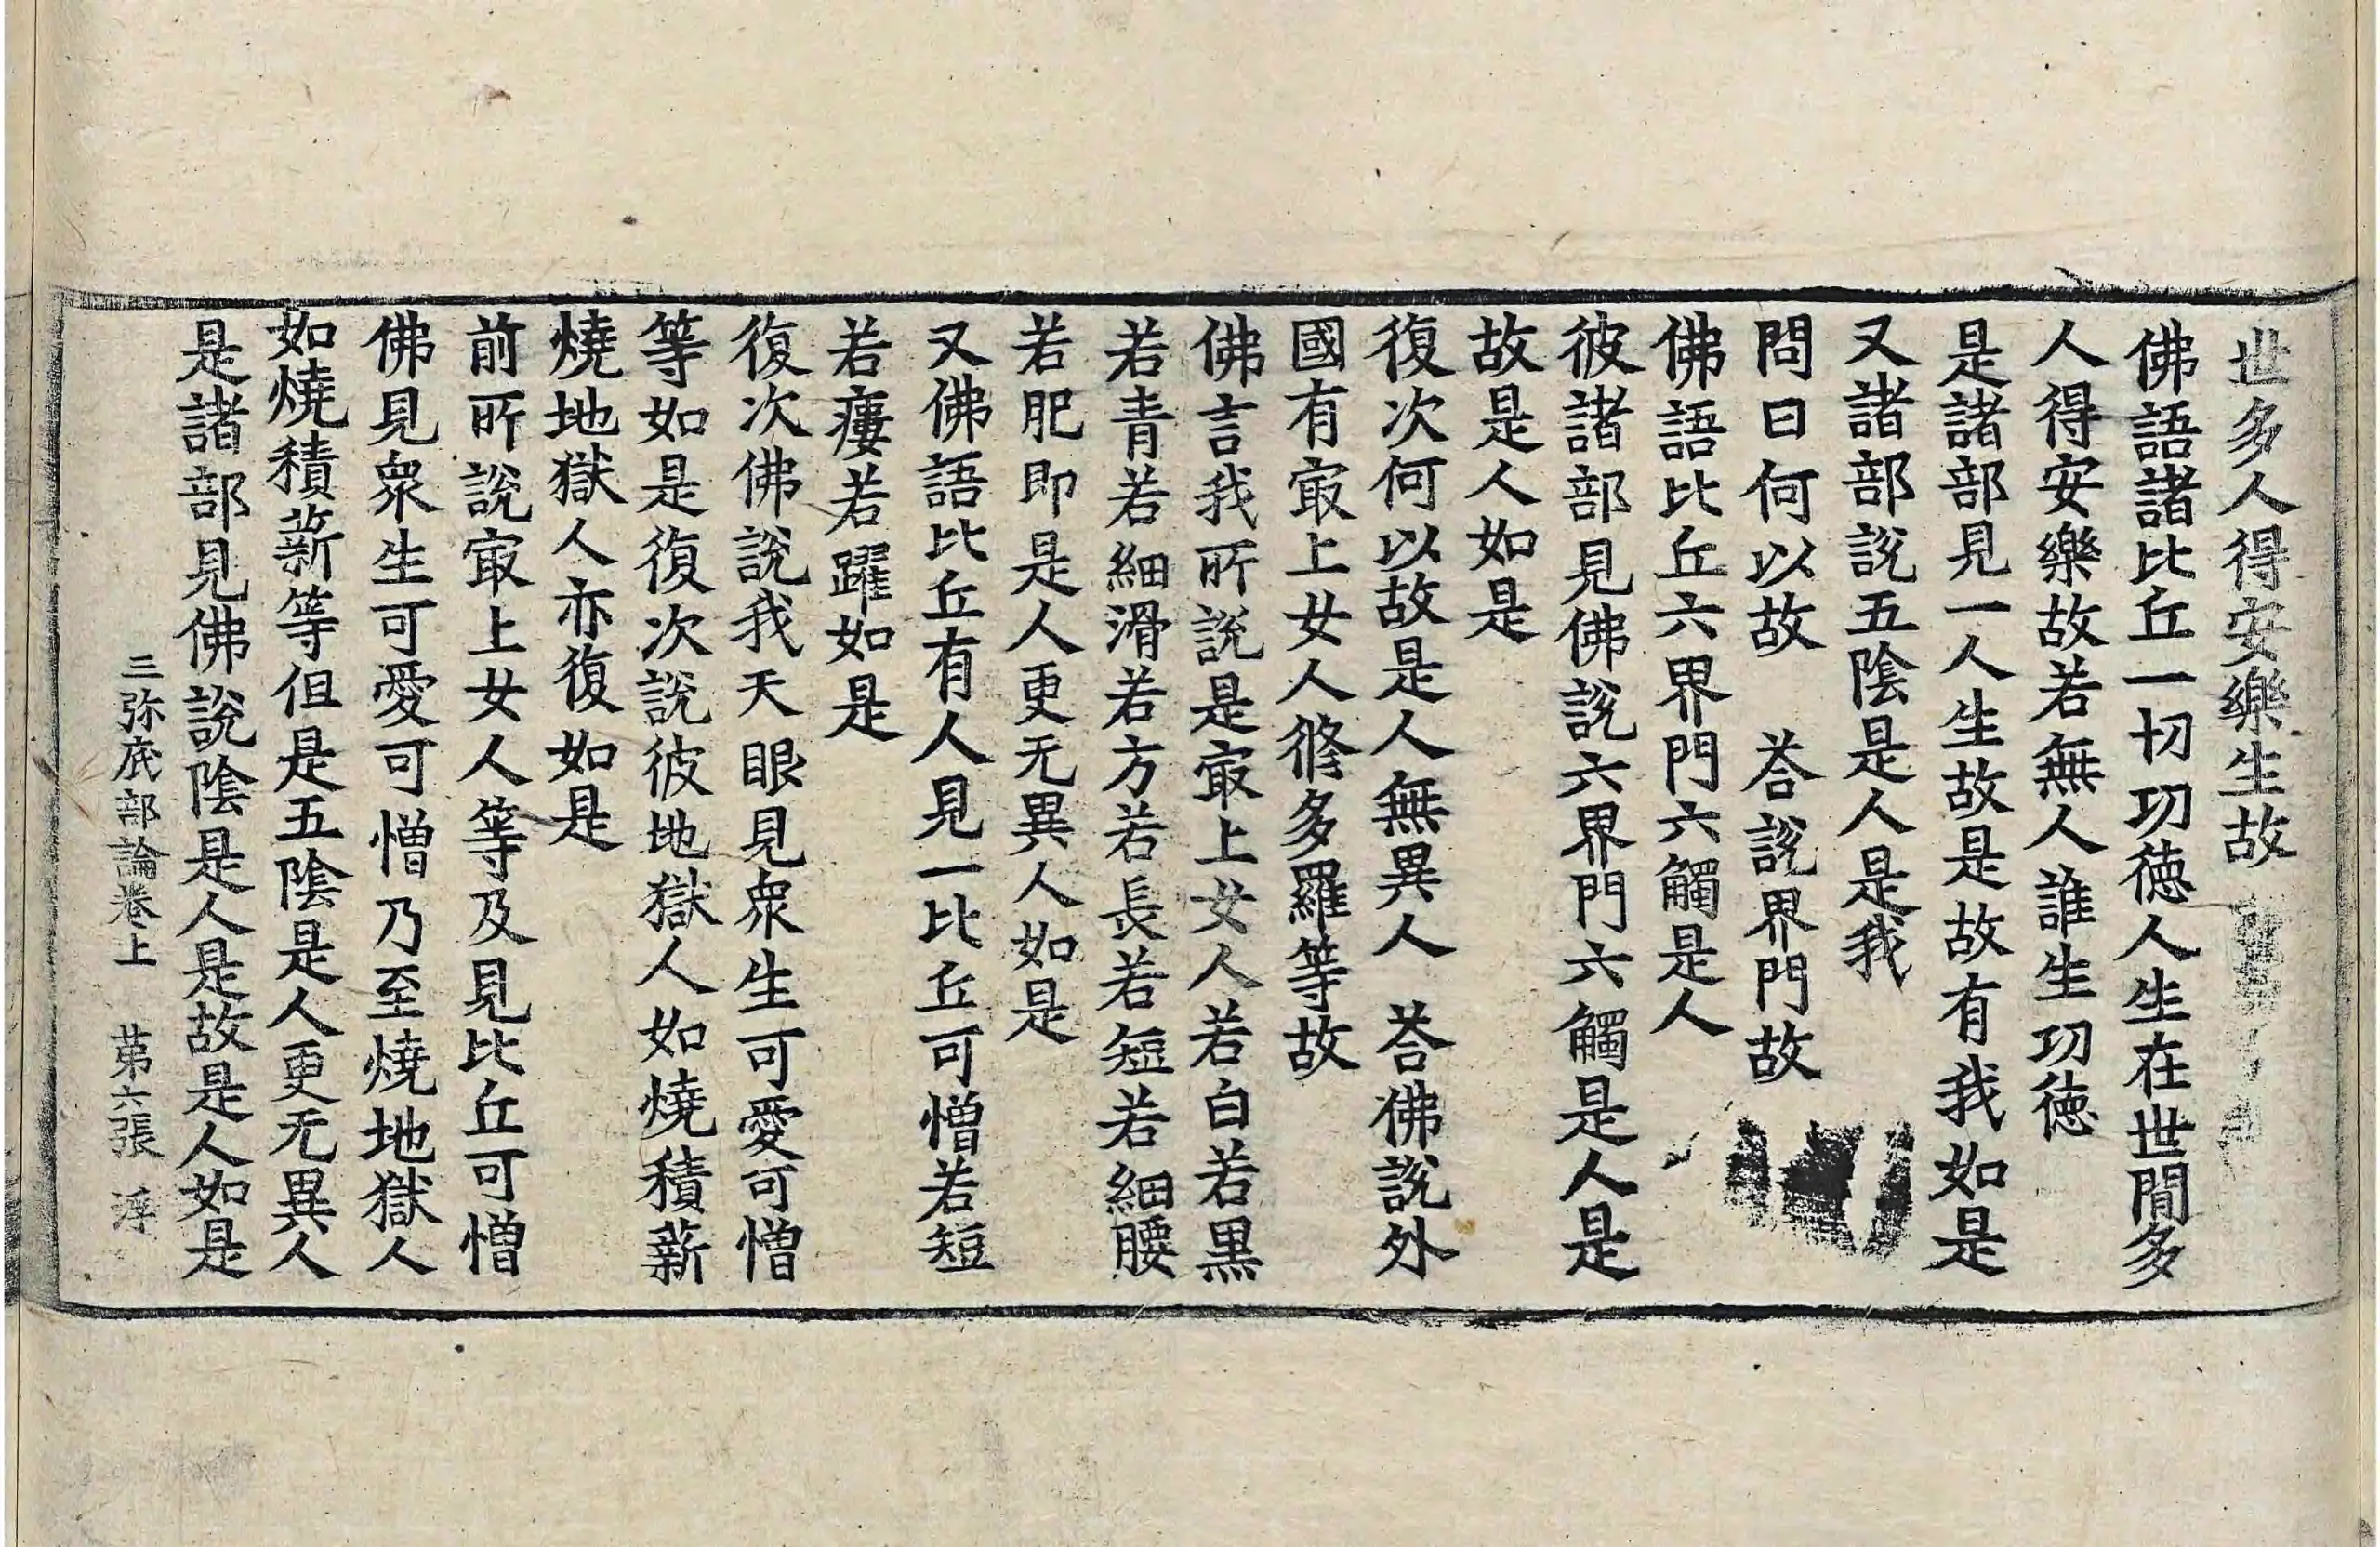 世多人得安樂生故
佛語諸比丘一切功德人生在世間多
人得安樂故若無人誰生功德
是諸部見一人生故是故有我如是
又諸部說五陰是人是我
問曰何以故　荅說界門故
佛語比丘六界門六觸是人
彼諸部見佛說六界門六觸是人是
故是人如是
復次何以故是人無異人　荅佛說外
國有㝡上女人脩多羅等故
佛言我所說是㝡上女人若白若黑
若青若細滑若方若長若短若細腰
若肥即是人更无異人如是
又佛語比丘有人見一比丘可憎若短
若瘻若躍如是
復次佛說我天眼見衆生可愛可憎
等如是復次說彼地獄人如燒積薪
燒地獄人亦復如是
前所說㝡上女人等及見比丘可憎
佛見衆生可愛可憎乃至燒地獄人
如燒積薪等但是五陰是人更无異人
是諸部見佛說陰是人是故是人如是
三弥底部論卷上　第六張　浮